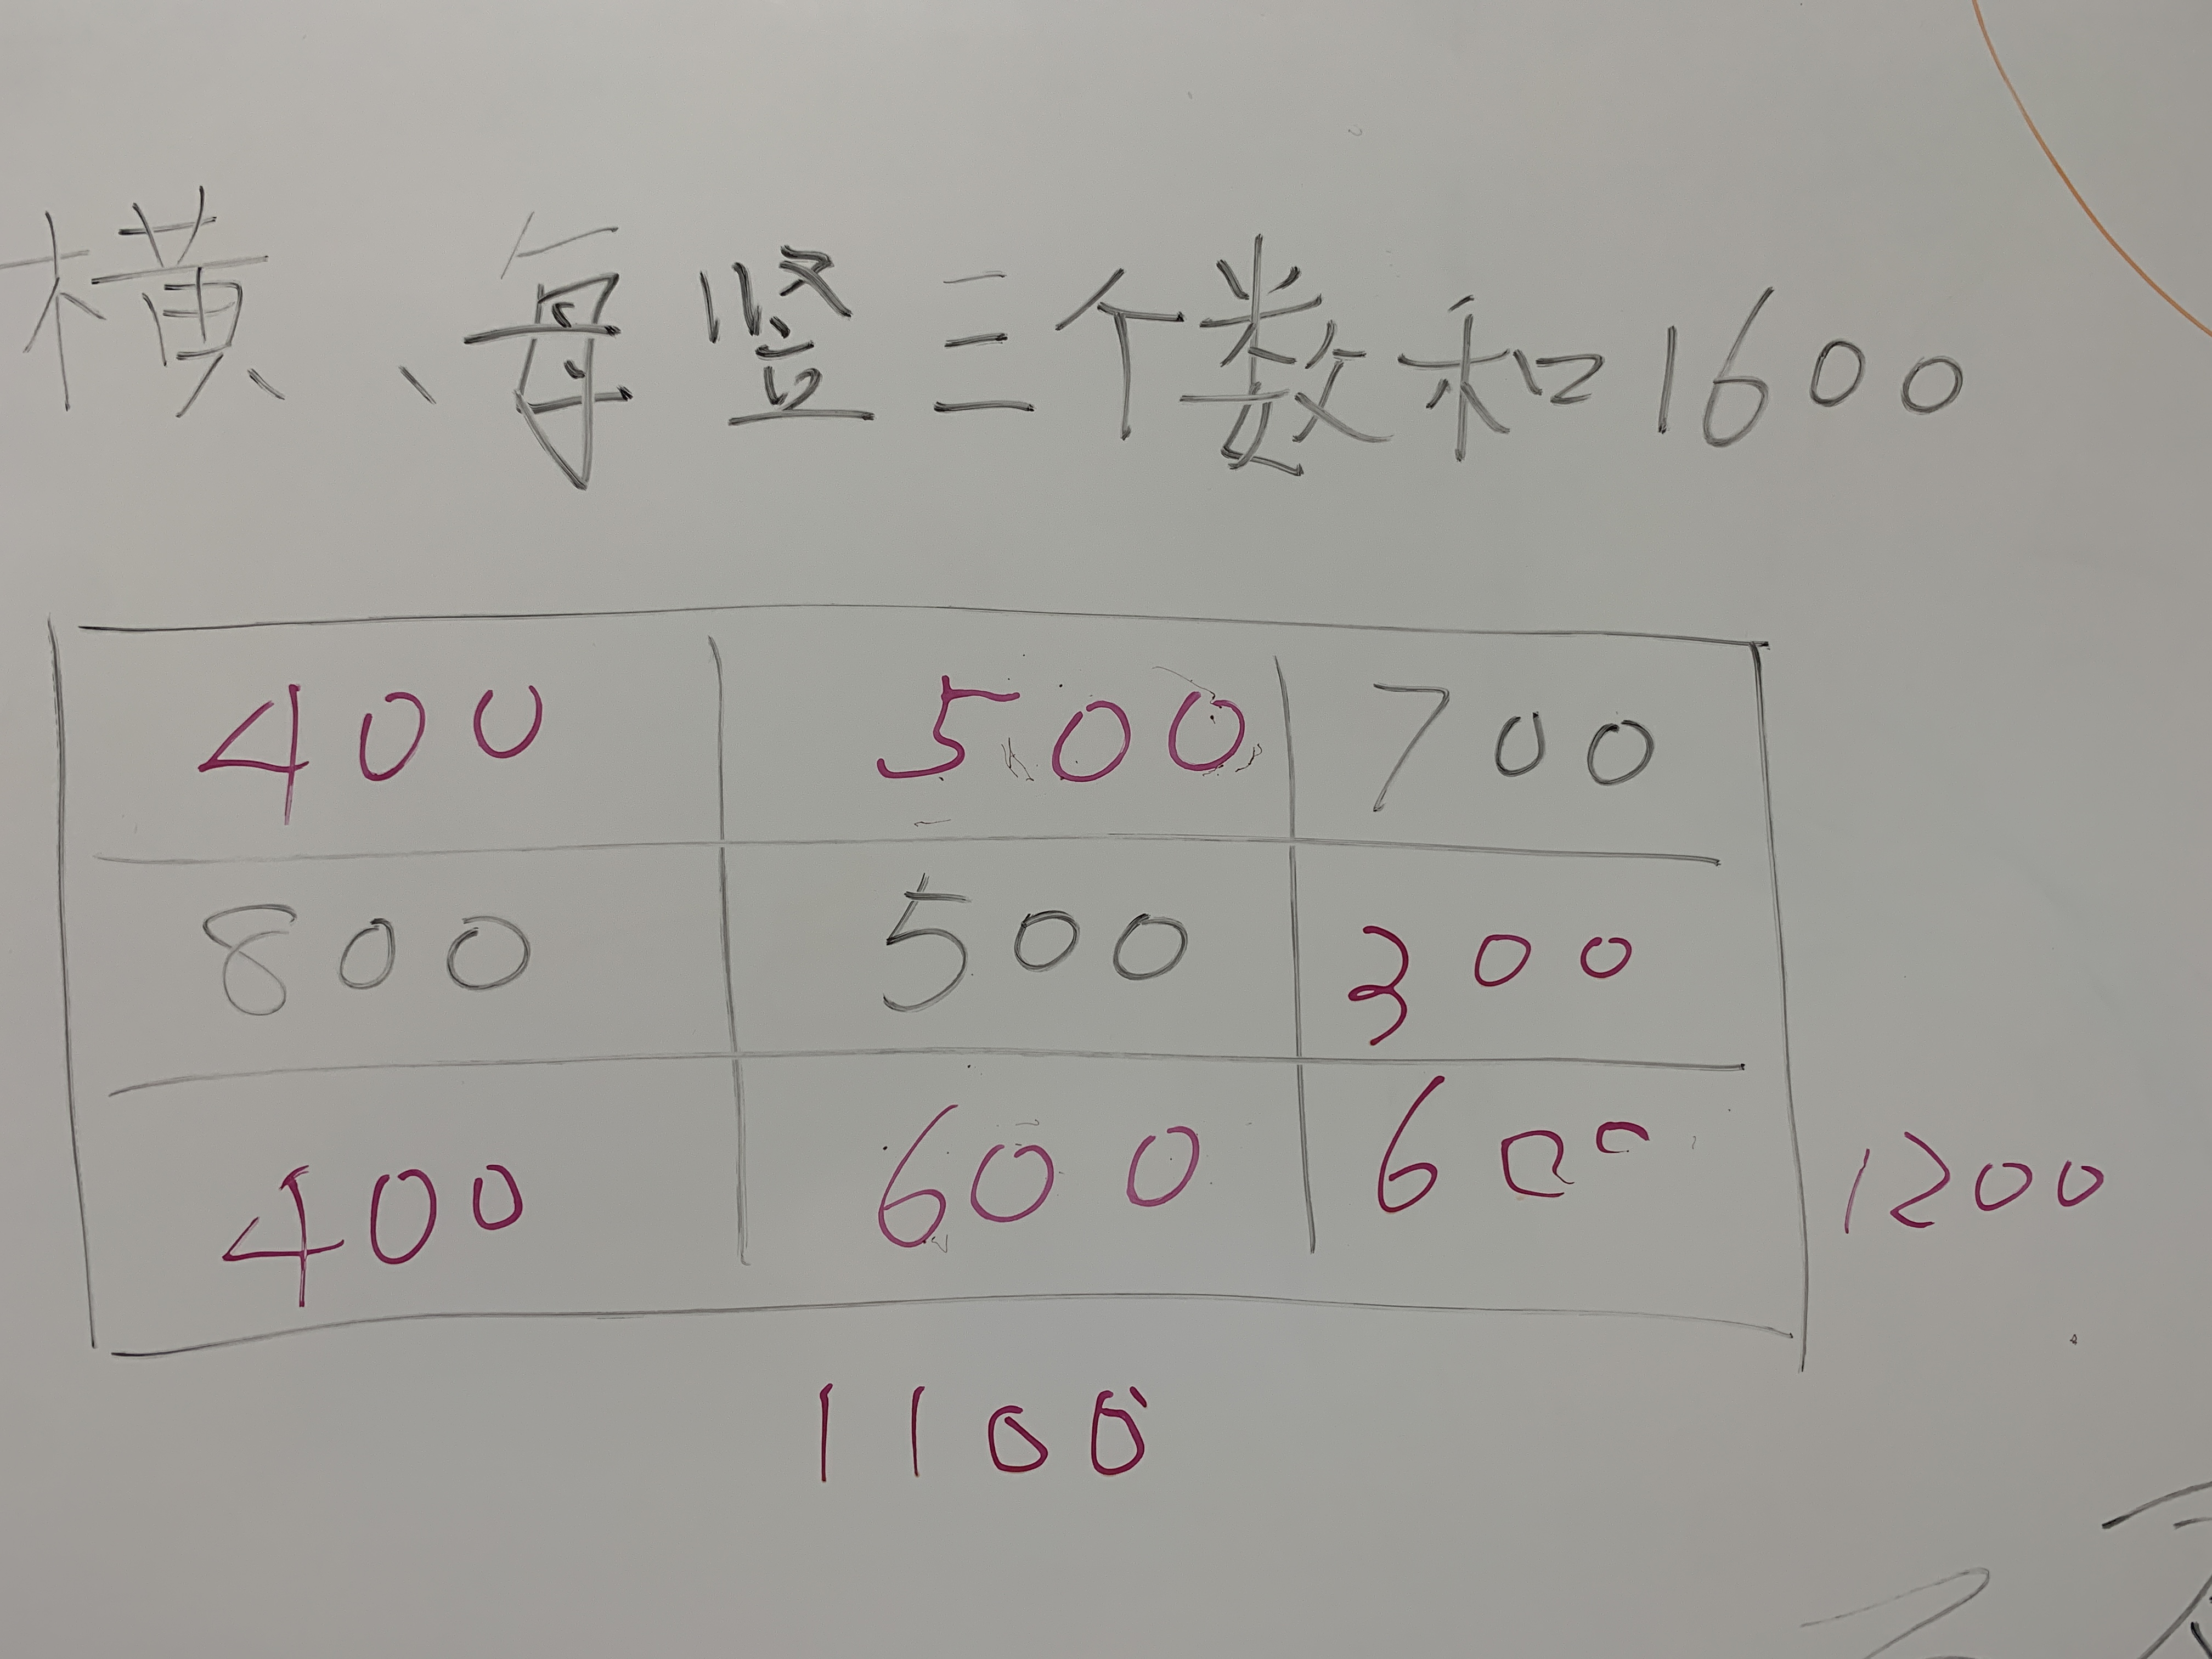 横、每竖三个数和1600
400 500 700
800 500 300
400 600 600 1200
1100